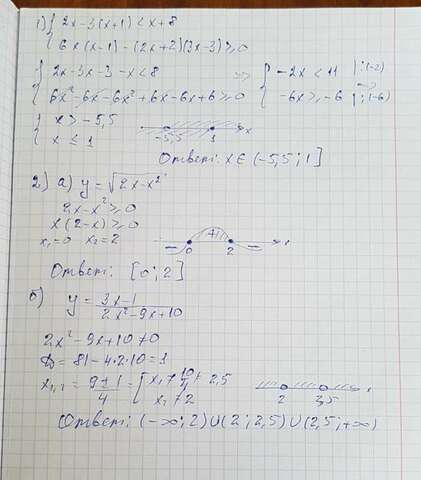 1) { 2x-3(x+1)<x+8
6x(x-1)-(2x+2)(3x-3)≥0
{ 2x-3x-3-x<8
6x²-6x-6x²+6x-6x+6≥0
=> { -2x<11 |:(-2)
-6x≥-6 |:(-6)
{ x>-5,5
x≤1
-5,5 1 x
Ответ: x∈(-5,5;1]
2) а) y=√2x-x²
2x-x²≥0
x(2-x)≥0
x₁=0 x₂=2
- + - 0 2 x
Ответ: [0;2]
б) y= 3x-1 / 2x²-9x+10
2x²-9x+10≠0
D=81-4·2·10=1
x₁,₂= 9±1 / 4 = [ x₁≠ 10/4 ≠ 2,5
x₂≠2
2 2,5 x
Ответ: (-∞;2)∪(2;2,5)∪(2,5;+∞)